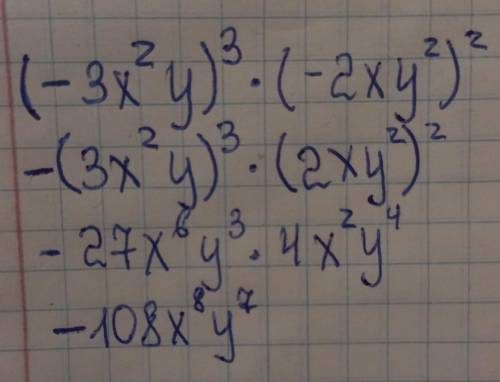 (-3x²y)³·(-2xy²)²
-(3x²y)³·(2xy²)²
-27x⁶y³·4x²y⁴
-108x⁸y⁷